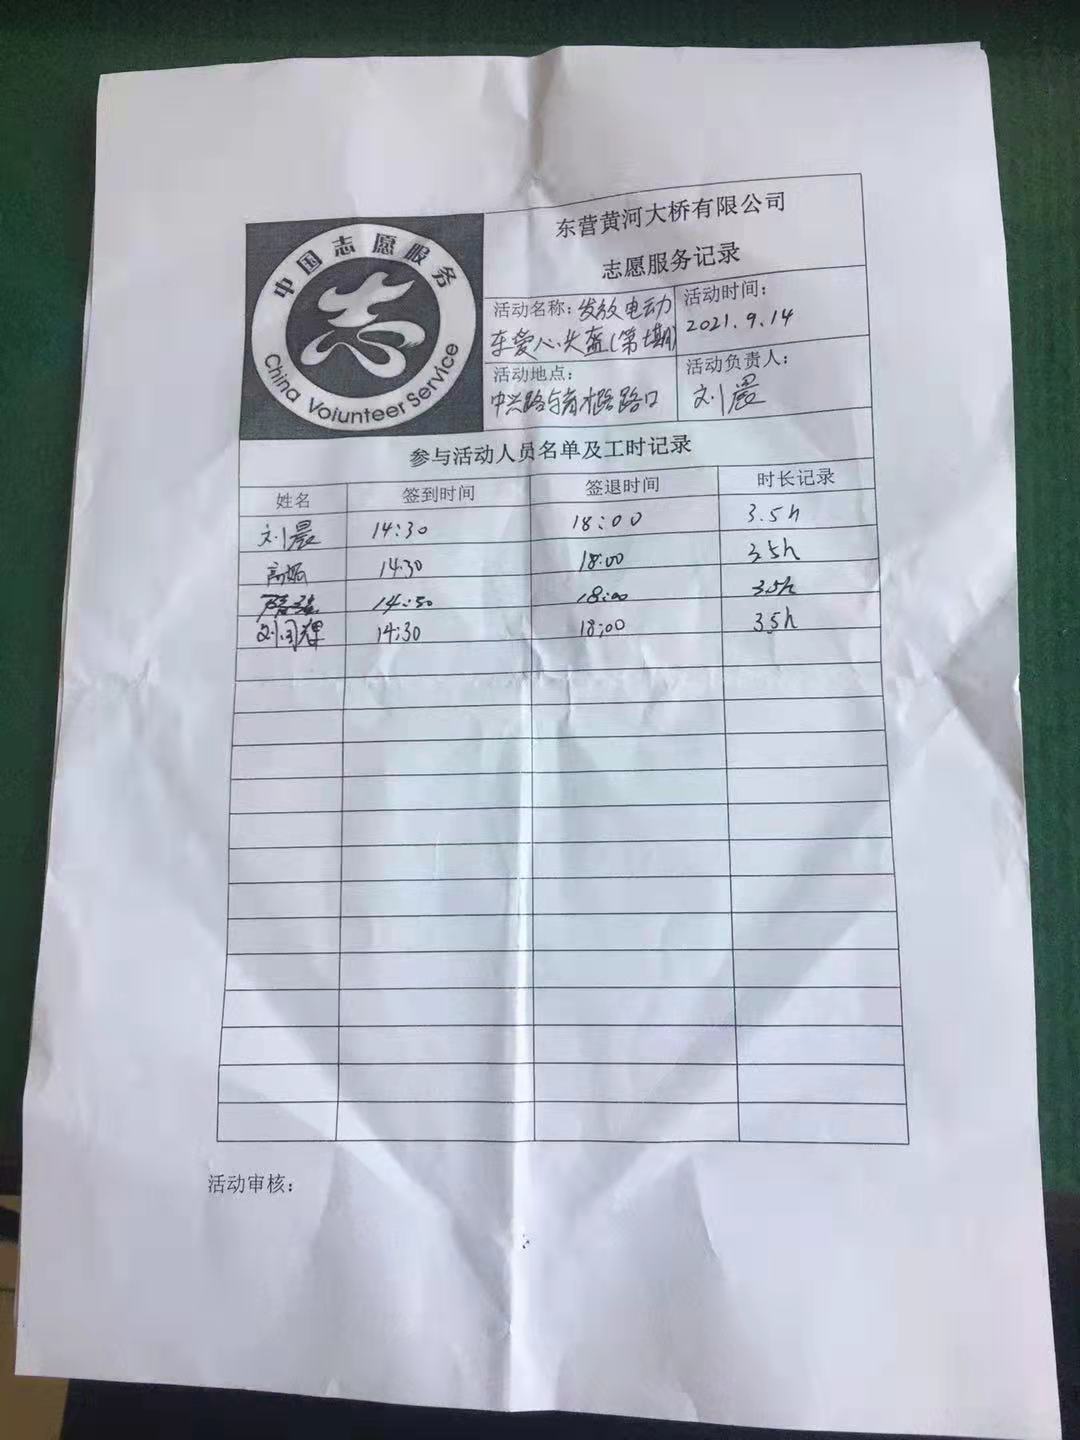 中国志愿服务
China Volunteer Service
东营黄河大桥有限公司
志愿服务记录
活动名称：发放电动
车爱心头盔(第七期)
活动时间：
2021.9.14
活动地点：
中兴路与 路路口
活动负责人：
刘晨
参与活动人员名单及工时记录
姓名 签到时间 签退时间 时长记录
刘晨 14:30 18:00 3.5h
高 14:30 18:00 3.5h
18:00 3.5h
刘国栗 14:30 18:00 3.5h
活动审核：